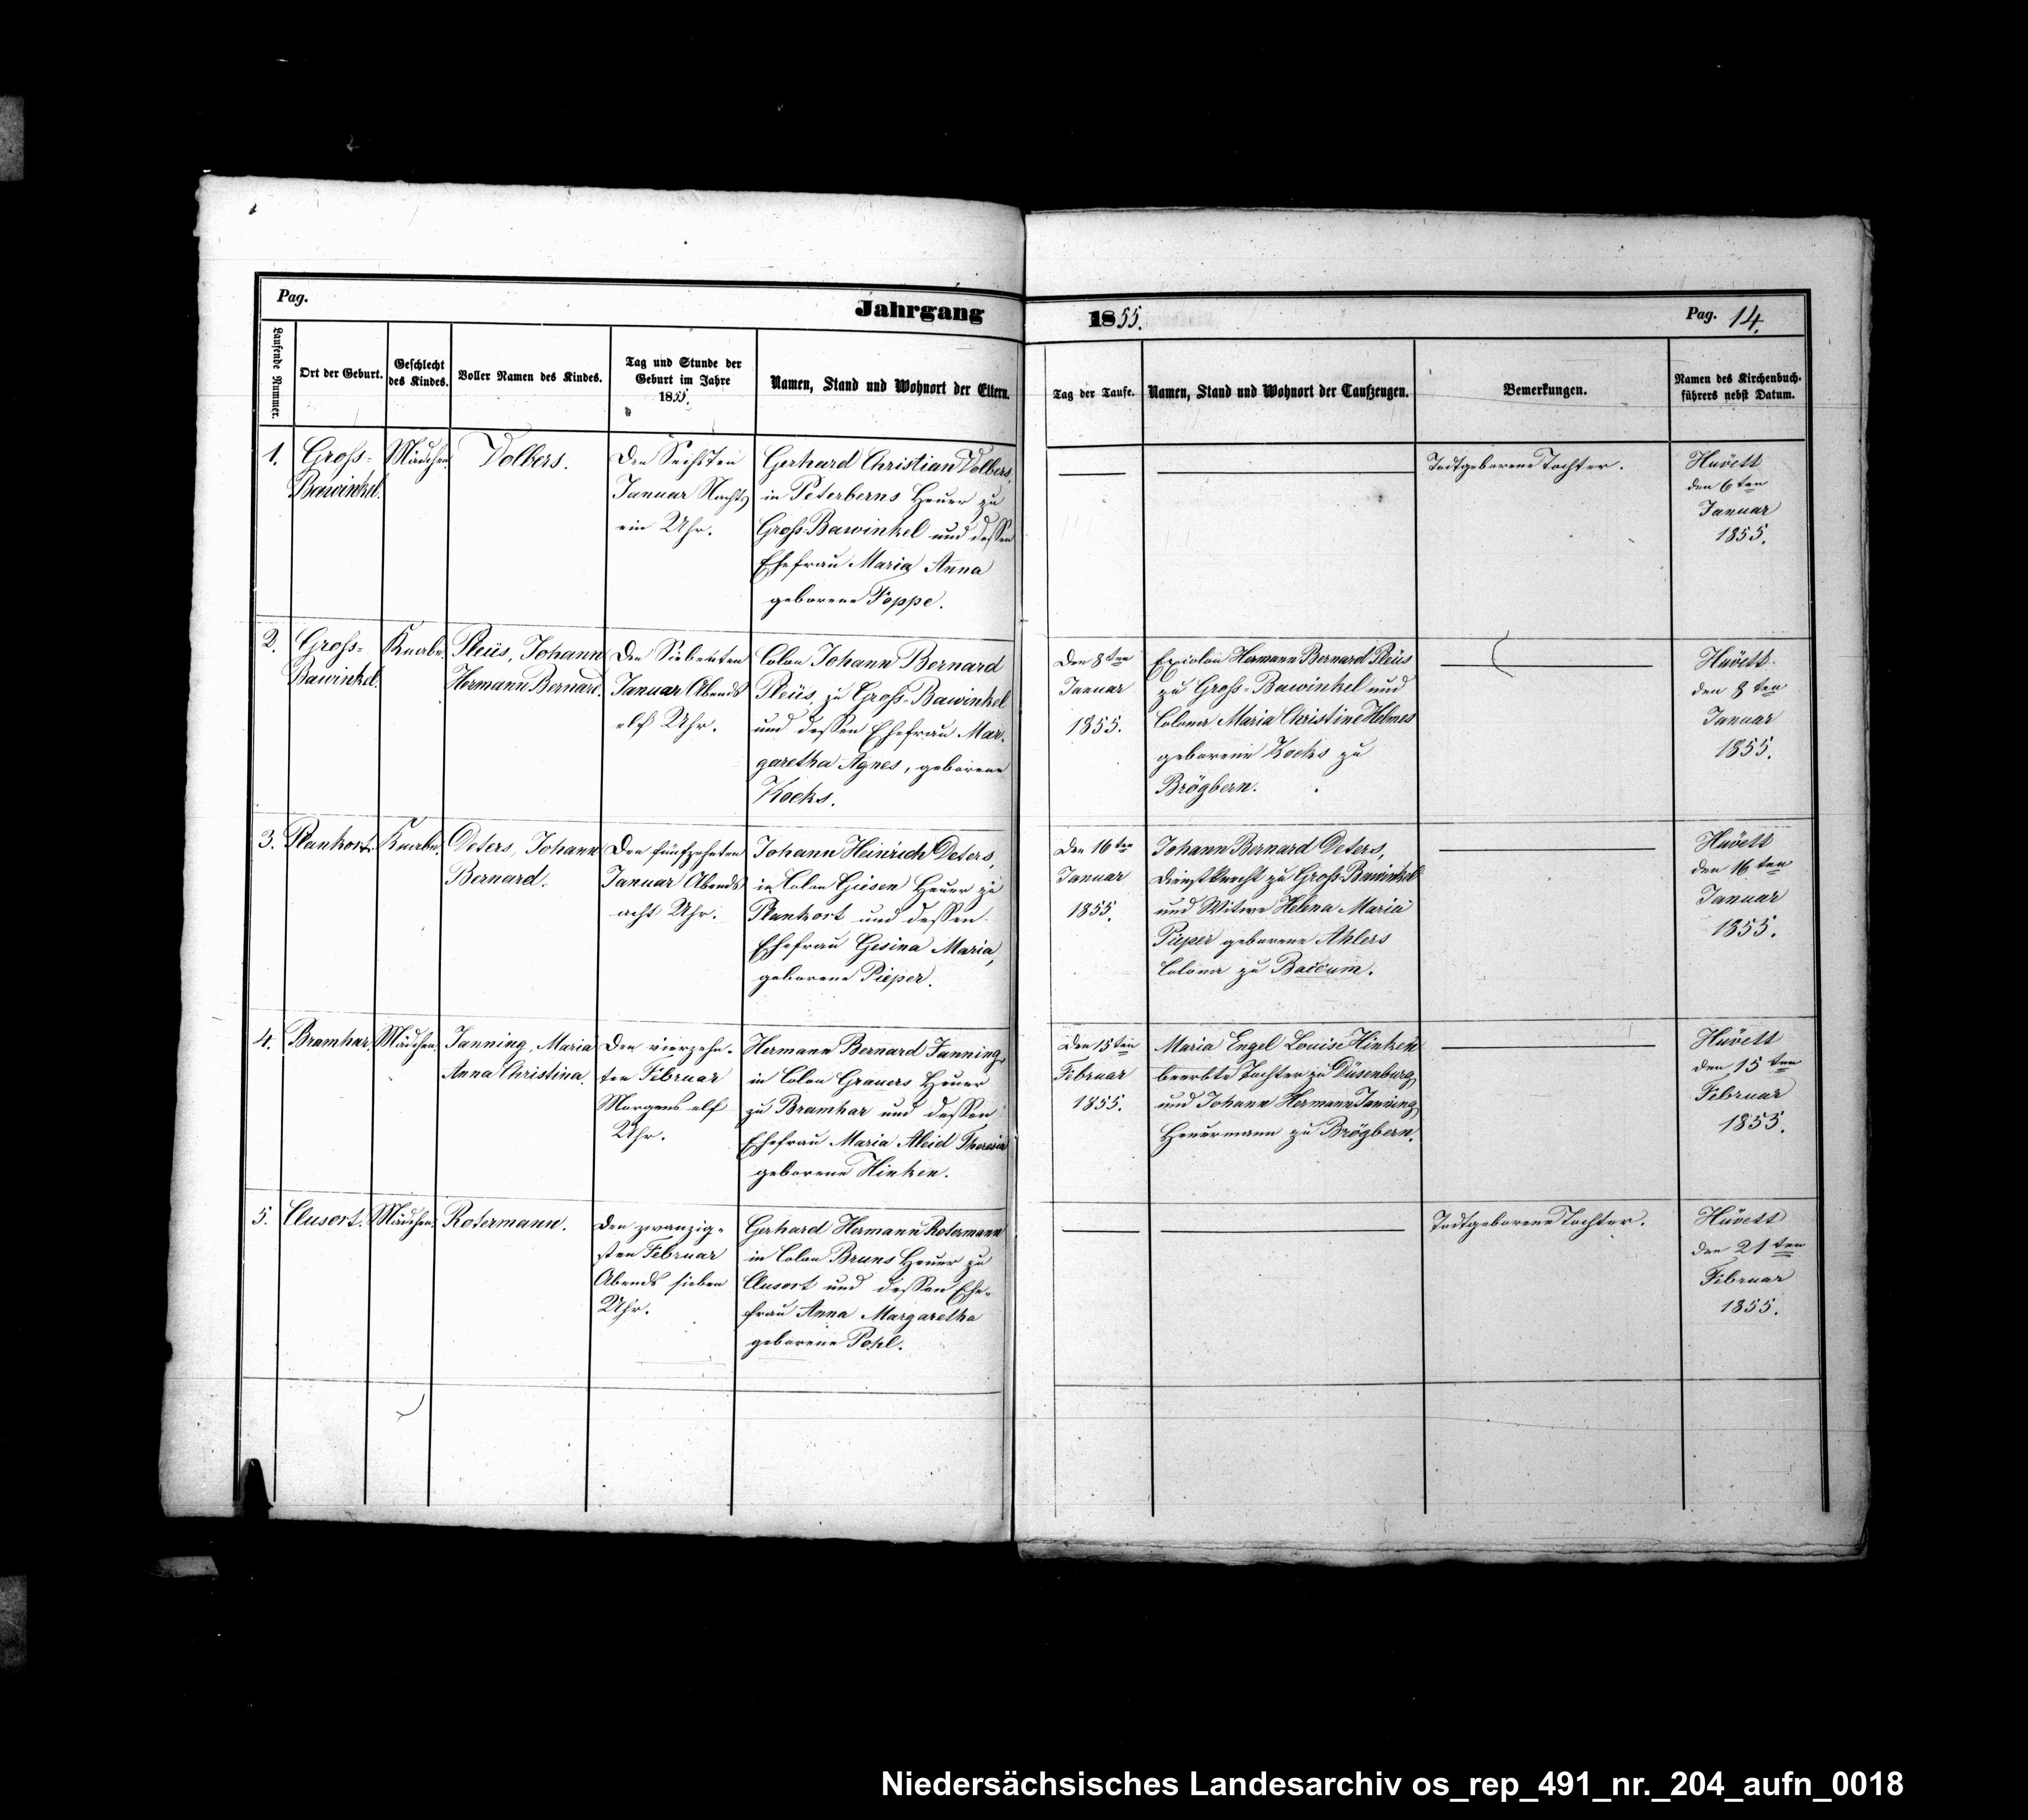 Pag.
Jahrgang
1855.
Pag. 14.
Laufende Nummer.
Ort der Geburt.
Geschlecht
des Kindes.
Voller Namen des Kindes.
Tag und Stunde der
Geburt im Jahre
1855.
Namen, Stand und Wohnort der Eltern.
Tag der Taufe.
Namen, Stand und Wohnort der Taufzeugen.
Bemerkungen.
Namen des Kirchenbuch-
führers nebst Datum.
1.
Groß-
Bawinkel.
Mädchen.
Volbers.
Den Sechsten
Januar Nachts
ein Uhr.
Gerhard Christian Volbers,
in Peterberns Heuer zu
Groß-Bawinkel und dessen
Ehefrau Maria Anna
geborene Foppe.
Todtgeborene Tochter.
Hüvett
den 6ten
Januar
1855.
2.
Groß-
Bawinkel.
Knabe.
Pleüs, Johann
Hermann Bernard.
Den Siebenten
Januar Abends
elf Uhr.
Colon Johann Bernard
Pleüs, zu Groß-Bawinkel
und dessen Ehefrau Mar-
garetha Agnes, geborene
Kocks.
Den 8ten
Januar
1855.
Hermann Bernard Pleüs
zu Groß-Bawinkel und
Colona Maria Christine Helmes
geborene Kocks zu
Brögbern.
Hüvett
den 8ten
Januar
1855.
3.
Plankort.
Knabe.
Deters, Johann
Bernard.
Den fünfzehnten
Januar Abends
acht Uhr.
Johann Heinrich Deters,
in Colon Giesen Heuer zu
Plankort und dessen
Ehefrau Gesina Maria,
geborene Pieper.
Den 16ten
Januar
1855.
Johann Bernard Deters,
Dienstknecht zu Groß-Bawinkel
und Witwe Helena Maria
Pieper geborene Ahlers
Colona zu Baccum.
Hüvett
den 16ten
Januar
1855.
4.
Bramhar.
Mädchen.
Janning, Maria
Anna Christina.
Den vierzehn-
ten Februar
Morgens elf
Uhr.
Hermann Bernard Janning,
in Colon Grauers Heuer
zu Bramhar und dessen
Ehefrau Maria Aleid Theresia
geborene Hinken.
Den 15ten
Februar
1855.
Maria Engel Louise Hinken
beerbte Tochter zu Düsenburg,
und Johann Hermann Janning,
Heuermann zu Brögbern.
Hüvett
den 15ten
Februar
1855.
5.
Clusort.
Mädchen.
Rotermann.
Den zwanzig-
sten Februar
Abends sieben
Uhr.
Gerhard Hermann Rotermann
in Colon Bruns Heuer zu
Clusort und dessen Ehe-
frau Anna Margaretha
geborene Pohl.
Todtgeborene Tochter.
Hüvett
den 21ten
Februar
1855.
Niedersächsisches Landesarchiv os_rep_491_nr._204_aufn_0018